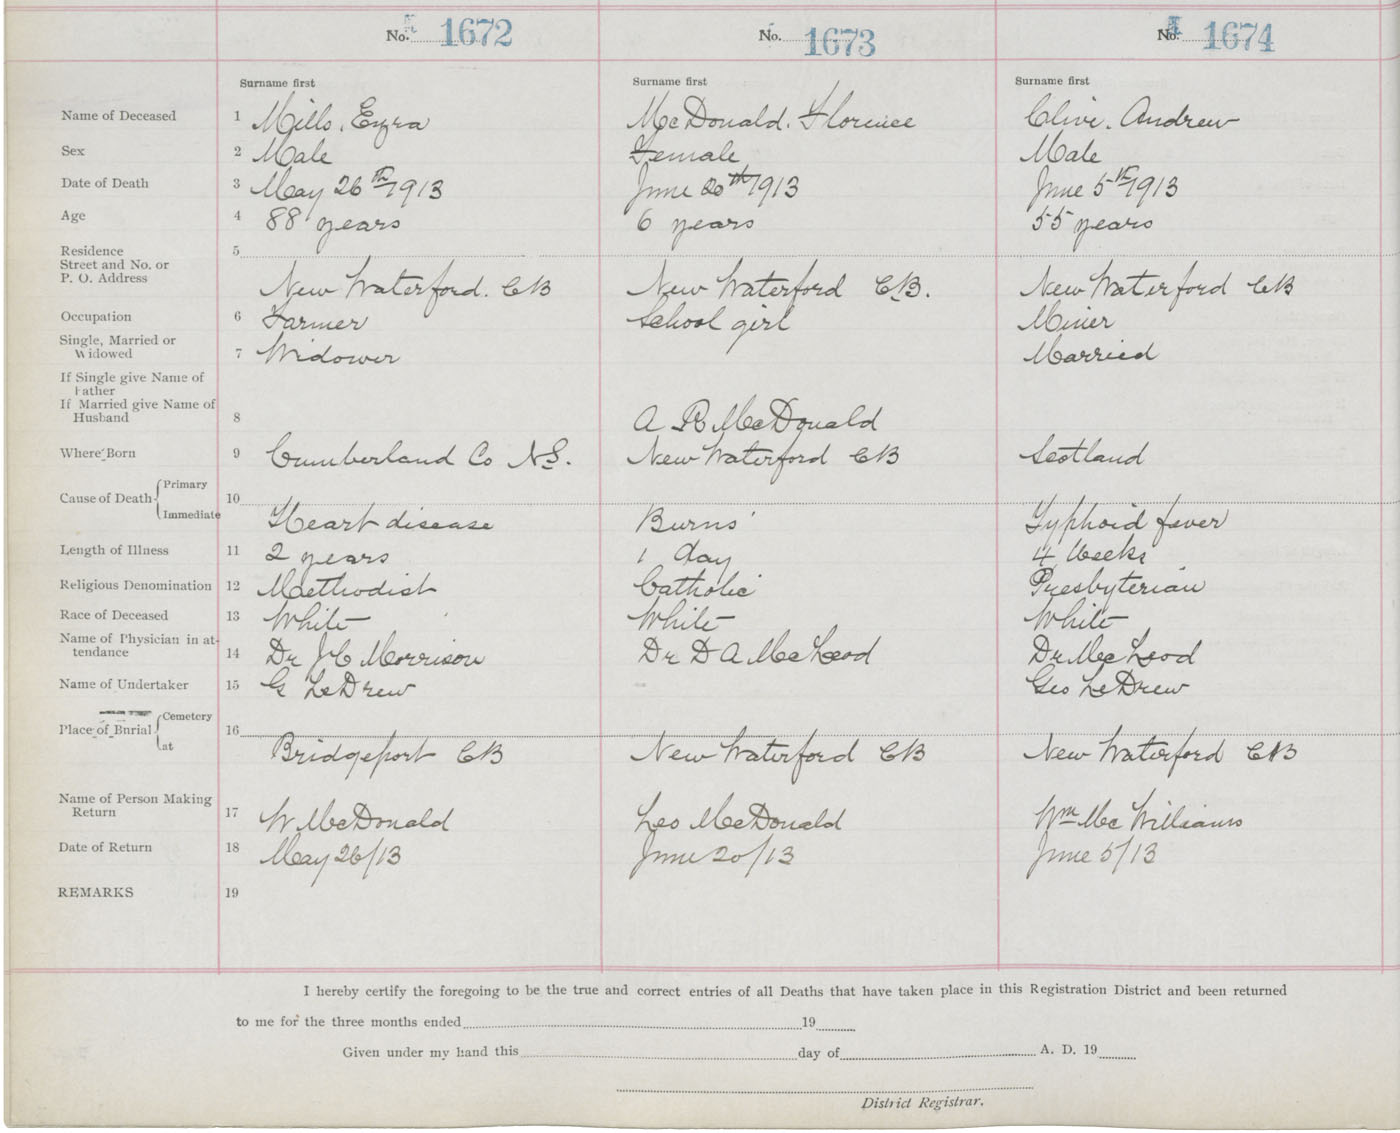 No. 1672 No. 1673 No. 1674
Surname first Surname first Surname first
Name of Deceased 1 Mills, Ezra McDonald. Florence Clive. Andrew
Sex 2 Male Female Male
Date of Death 3 May 26th 1913 June 20th 1913 June 5th 1913
Age 4 88 years 6 years 55 years
Residence 5
Street and No. or
P. O. Address
New Waterford. CB New Waterford CB. New Waterford CB
Occupation 6 Farmer School girl Miner
Single, Married or
Widowed 7 Widower Married
If Single give Name of
Father
If Married give Name of
Husband 8 A R McDonald
Where Born 9 Cumberland Co N.S. New Waterford CB Scotland
Cause of Death Primary 10
Immediate Heart disease Burns Typhoid fever
Length of Illness 11 2 years 1 day 4 Weeks
Religious Denomination 12 Methodist Catholic Presbyterian
Race of Deceased 13 White White White
Name of Physician in at-
tendance 14 Dr J C Morrison Dr D A McLeod Dr McLeod
Name of Undertaker 15 G LeDrew Geo LeDrew
Place of Burial Cemetery 16
at Bridgeport CB New Waterford CB New Waterford CB
Name of Person Making
Return 17 W McDonald Leo McDonald Wm McWilliams
Date of Return 18 May 26/13 June 20/13 June 5/13
REMARKS 19
I hereby certify the foregoing to be the true and correct entries of all Deaths that have taken place in this Registration District and been returned
to me for the three months ended 19
Given under my hand this day of A. D. 19
District Registrar.